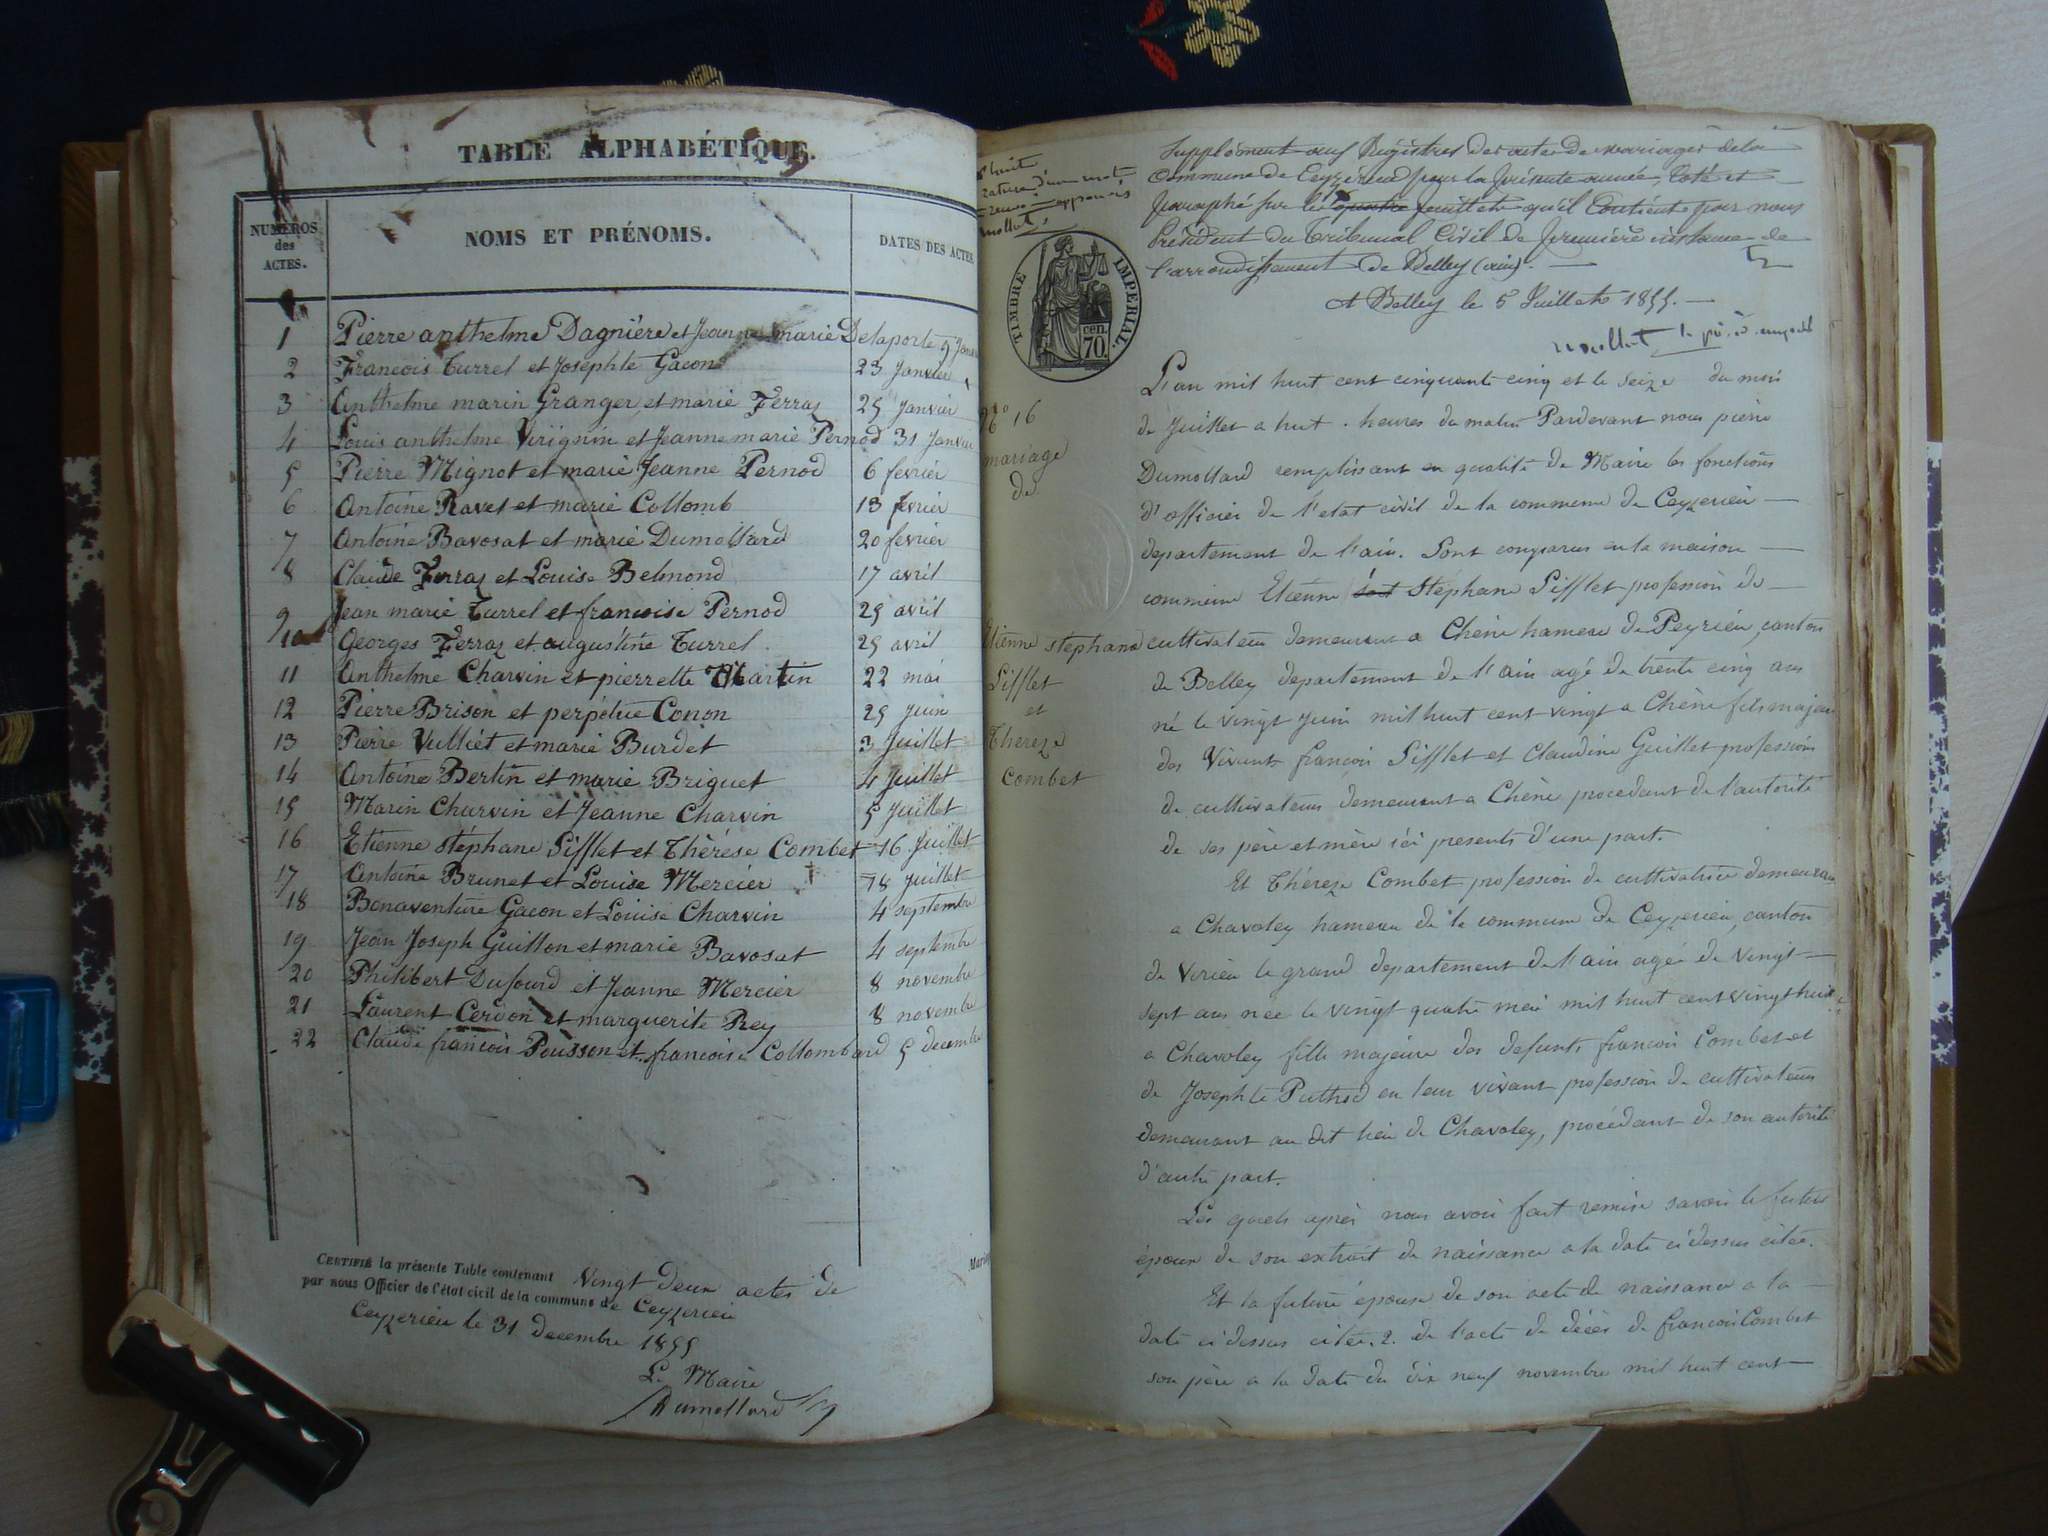 TABLE ALPHABÉTIQUE.
NUMÉROS des ACTES.
NOMS ET PRÉNOMS.
DATES DES ACTES
1 Pierre anthelme Dagnière et Jeanne marie Delaporte 9 Janv
2 François Turrel et Josephte Gacon 23 Janvier
3 Anthelme marin Granger et marie Ferraz 25 Janvier
4 Louis anthelme Virignin et Jeanne marie Pernod 31 Janvier
5 Pierre Mignot et marie Jeanne Pernod 6 fevrier
6 Antoine Ravet et marie Collomb 13 fevrier
7 Antoine Bavosat et marie Dumollard 20 fevrier
8 Claude Ferraz et Louise Belmond 17 avril
9 Jean marie Turrel et francoise Pernod 25 avril
10 Georges Ferraz et augustine Turrel 25 avril
11 Anthelme Charvin et pierrette Martin 22 mai
12 Pierre Brison et perpétue Conon 25 Juin
13 Pierre Vulliet et marie Burdet 3 Juillet
14 Antoine Bertin et marie Briguet 4 Juillet
15 Marin Charvin et Jeanne Charvin 5 Juillet
16 Etienne stéphane Sifflet et Thérèse Combet 16 Juillet
17 Antoine Brunet et Louise Mercier 18 Juillet
18 Bonaventure Gacon et Louise Charvin 4 septembre
19 Jean Joseph Guillon et marie Bavosat 4 septembre
20 Philibert Dufourd et Jeanne Mercier 8 novembre
21 Laurent Cerdon et marguerite Rey 8 novembre
22 Claude francois Pousson et francoise Collombard 5 decembre
CERTIFIÉ la présente Table contenant Vingt deux actes de
par nous Officier de l'état civil de la commune de Ceyzerieu
Ceyzerieu le 31 decembre 1855
Le Maire
Dumollard
rature d'un mot
Supplément aux Régistres des actes de mariages de la
Commune de Ceyzérieu pour la présente année, Coté et
paraphé sur les quatre feuillets qu'il Contient par nous
Président du Tribunal Civil de première instance de
l'arrondissement de Belley (ain).
A Belley le 5 Juillet 1855.
TIMBRE IMPERIAL.
cen. 70.
No 16
mariage
de
Etienne stephane
Sifflet
et
Thereze
Combet
L'an mil huit cent cinquante cinq et le seize du mois
de Juillet a huit heures du matin Pardevant nous pierre
Dumollard remplissant en qualité de Maire les fonctions
d'officier de l'etat civil de la commune de Ceyzerieu
departement de l'ain. Sont comparus en la maison
commune Etienne Stéphane Sifflet profession de
cultivateur demeurant a Chéne hameau de Peyrieu, canton
de Belley departement de l'ain agé de trente cinq ans
né le vingt Juin mil huit cent vingt a Chéne fils majeur
des Vivants françois Sifflet et Claudine Guillet profession
de cultivateurs demeurant a Chéne procedant de l'autorité
de ses père et mère ici presents d'une part.
Et Théreze Combet profession de cultivatrice demeurant
a Chavoley hameau de la commune de Ceyzerieu, canton
de Virieu le grand departement de l'ain agée de vingt
sept ans née le vingt quatre mai mil huit cent vingt huit
a Chavoley fille majeure des defunts francois Combet et
de Josephte Puthod en leur vivant profession de cultivateurs
demeurant au dit lieu de Chavoley, procédant de son autorité
d'autre part.
Les quels après nous avoir fait remise savoir le futur
époux de son extrait de naissance a la date ci dessus citée.
Et la future épouse de son acte de naissance a la
date ci dessus citée. 2. de l'acte de décès de francois Combet
son père a la date du dix neuf novembre mil huit cent